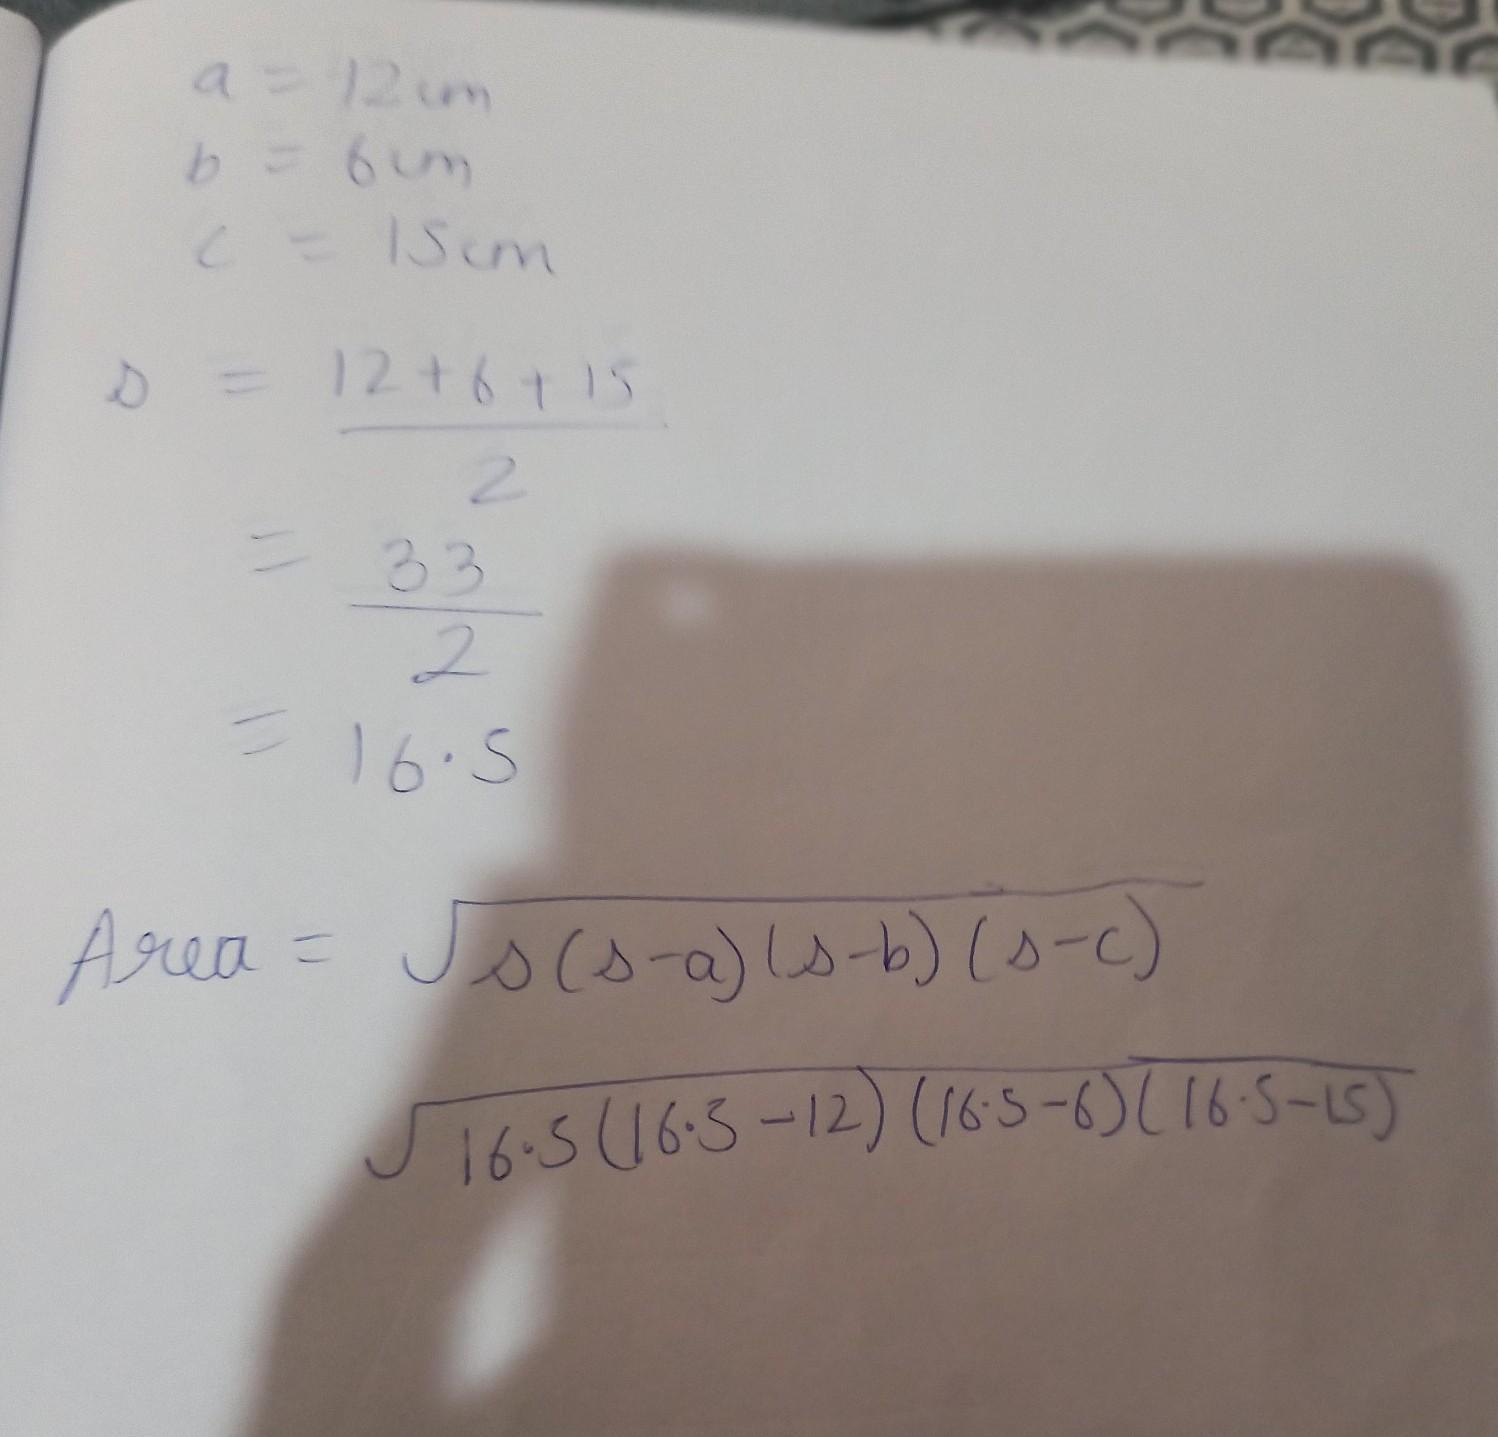 a = 12cm
b = 6cm
c = 15cm
s = 12+6+15
2
= 33
2
= 16.5
Area = √s(s-a)(s-b)(s-c)
√16.5(16.5-12)(16.5-6)(16.5-15)